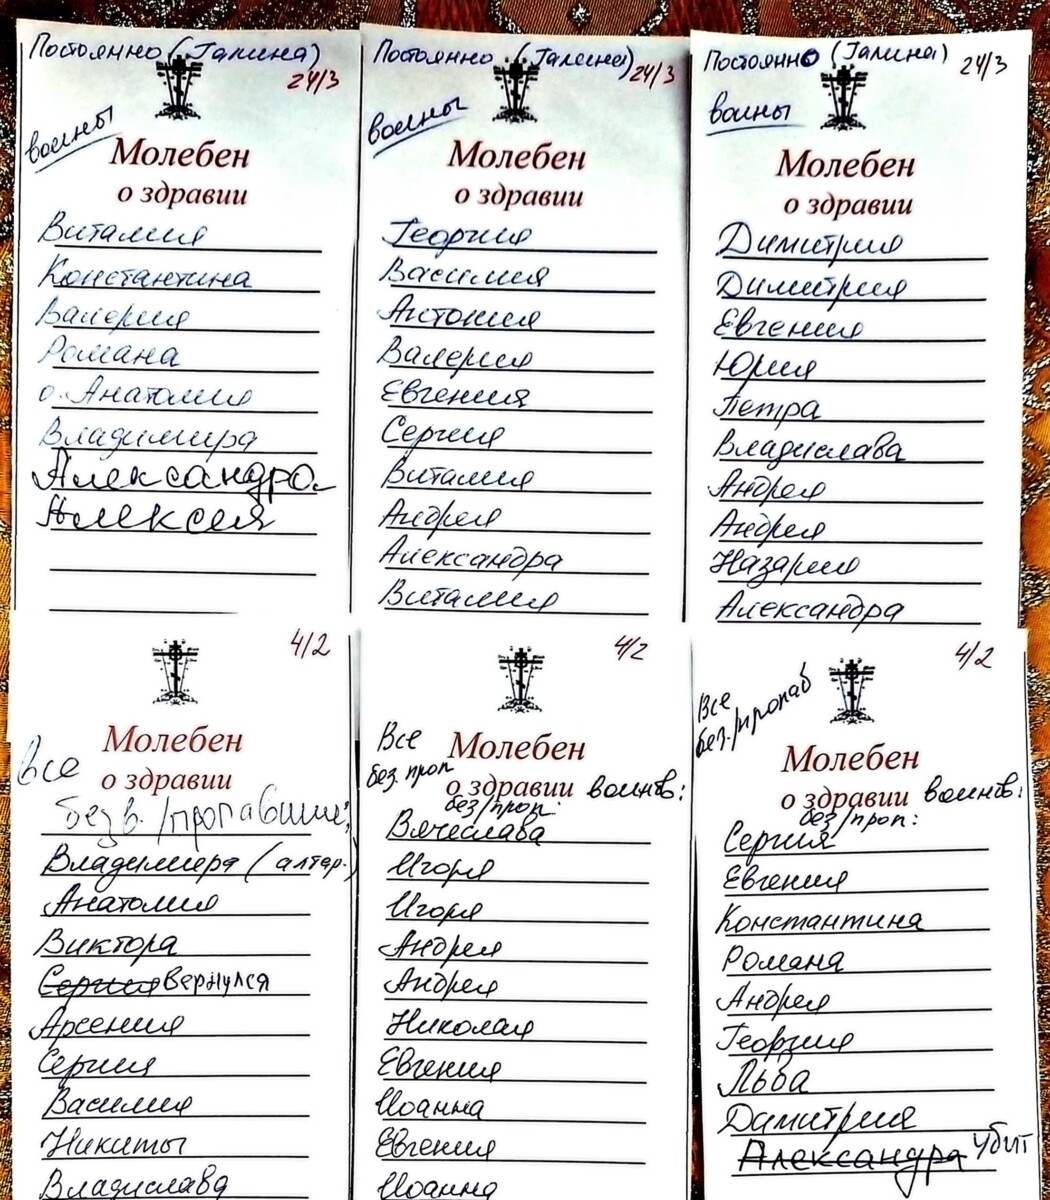 Постоянно (Галина)
24/3
воины
Молебен
о здравии
Виталия
Константина
Валерия
Романа
о. Анатолия
Владимира
Александра
Алексея
Постоянно (Галина)
24/3
воины
Молебен
о здравии
Георгия
Василия
Антония
Валерия
Евгения
Сергия
Виталия
Андрея
Александра
Виталия
Постоянно (Галина)
24/3
воины
Молебен
о здравии
Димитрия
Димитрия
Евгения
Юрия
Петра
Владислава
Андрея
Андрея
Назария
Александра
4/2
Молебен
Все
о здравии
без в./пропавшие:
Владимира (алтар.)
Анатолия
Виктора
Сергия вернулся
Арсения
Сергия
Василия
Никиты
Владислава
4/2
Все
Молебен
без. проп
о здравии воинов:
без/проп:
Вячеслава
Игоря
Игоря
Андрея
Андрея
Николая
Евгения
Иоанна
Евгения
Иоанна
4/2
Все
без./пропав
Молебен
о здравии воинов:
без/проп:
Сергия
Евгения
Константина
Романа
Андрея
Георгия
Льва
Димитрия
Александра убит